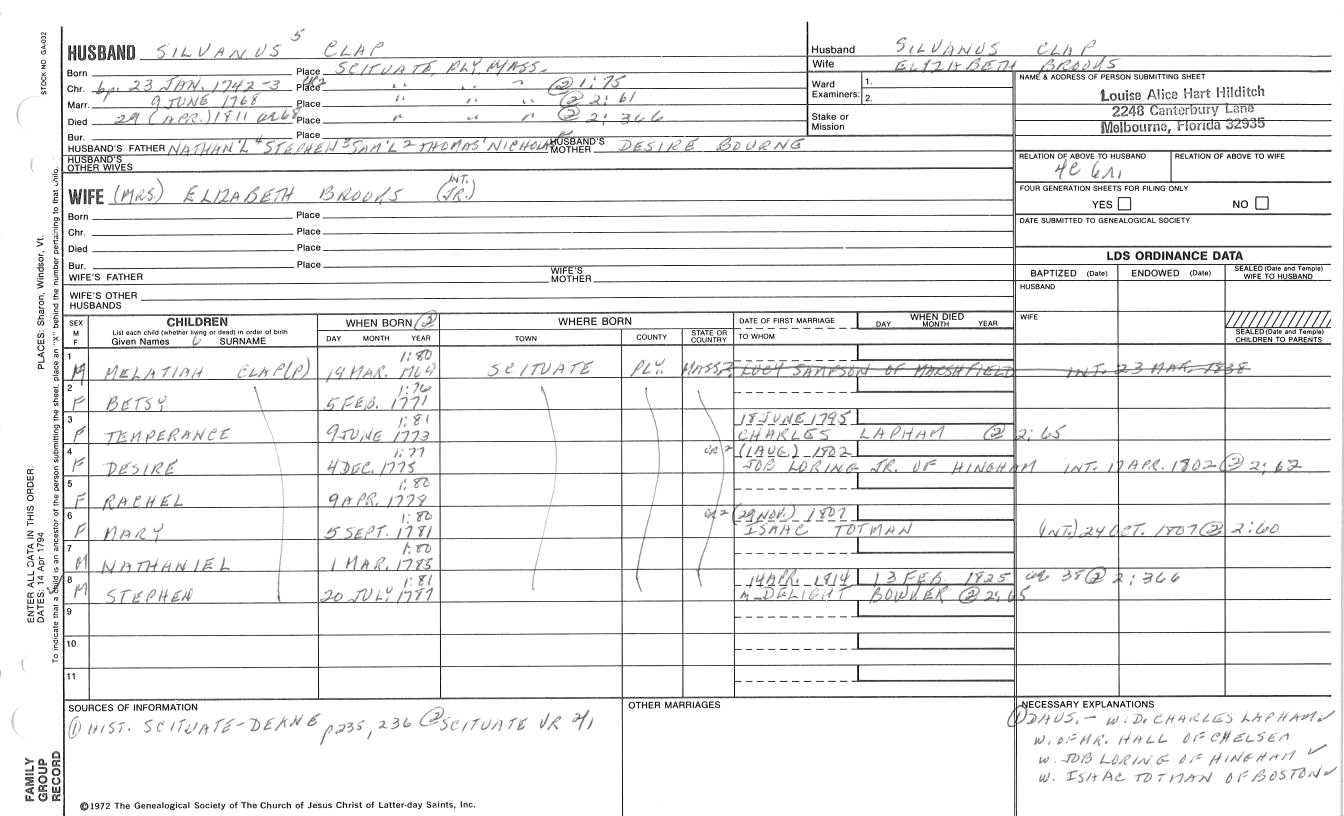 STOCK NO GA-032
HUSBAND SILVANUS 5 CLAP
Husband SILVANUS CLAP
Wife ELIZABETH BROOKS
Born Place SCITUATE, PLY, MASS.
Chr. bp. 23 JAN. 1742-3 CR2 Place " " " @ 1:75
Marr. 9 JUNE 1768 Place " " " @ 2:61
Died 29 (APR.) 1811 ae 68 Place " " " @ 2:366
Bur. Place
Ward 1.
Examiners: 2.
Stake or
Mission
NAME & ADDRESS OF PERSON SUBMITTING SHEET
Louise Alice Hart Hilditch
2248 Canterbury Lane
Melbourne, Florida 32935
HUSBAND'S FATHER NATHAN'L 4 STEPHEN 3 SAM'L 2 THOMAS 1 NICHOLAS HUSBAND'S MOTHER DESIRE BOURNE
HUSBAND'S
OTHER WIVES
RELATION OF ABOVE TO HUSBAND RELATION OF ABOVE TO WIFE
4C 6r1
FOUR GENERATION SHEETS FOR FILING ONLY
YES NO
DATE SUBMITTED TO GENEALOGICAL SOCIETY
WIFE (MRS) ELIZABETH BROOKS INT. (JR.)
Born Place
Chr. Place
Died Place
Bur. Place
WIFE'S FATHER WIFE'S MOTHER
WIFE'S OTHER
HUSBANDS
LDS ORDINANCE DATA
BAPTIZED (Date) ENDOWED (Date) SEALED (Date and Temple) WIFE TO HUSBAND
HUSBAND
WIFE
SEALED (Date and Temple) CHILDREN TO PARENTS
SEX M F
CHILDREN
List each child (whether living or dead) in order of birth
Given Names SURNAME
WHEN BORN (2)
DAY MONTH YEAR
WHERE BORN
TOWN COUNTY STATE OR COUNTRY
DATE OF FIRST MARRIAGE
TO WHOM
WHEN DIED
DAY MONTH YEAR
1 1:80
M MELATIAH CLAP(P) 14 MAR. 1769 SCITUATE PLY. MASS. LUCY SAMPSON OF MARSHFIELD INT. 23 MAR. 1838
2 1:76
F BETSY 5 FEB. 1771
3 1:81 18 JUNE 1795
F TEMPERANCE 9 JUNE 1773 CHARLES LAPHAM @ 2:65
4 1:77 CR 2 (1 AUG) 1802
F DESIRE 4 DEC. 1775 JOB LORING JR. OF HINGHAM INT. 17 APR. 1802 @ 2:62
5 1:80
F RACHEL 9 APR. 1778
6 1:80 CR 2 (29 NOV.) 1807
F MARY 5 SEPT. 1781 ISAAC TOTMAN (INT.) 24 OCT. 1807 @ 2:60
7 1:80
M NATHANIEL 1 MAR. 1785
8 1:81 14 APR. 1814 13 FEB. 1825 ae 38 @ 2:366
M STEPHEN 20 JULY 1787 m. DELIGHT BOWKER @ 2:65
9
10
11
SOURCES OF INFORMATION
① HIST. SCITUATE-DEANE p 235, 236 ② SCITUATE VR 2/1
OTHER MARRIAGES
NECESSARY EXPLANATIONS
① DAUS. - W. OF CHARLES LAPHAM ✓
W. OF MR. HALL OF CHELSEA
W. JOB LORING OF HINGHAM ✓
W. ISAAC TOTMAN OF BOSTON ✓
FAMILY
GROUP
RECORD
ENTER ALL DATA IN THIS ORDER:
DATES: 14 Apr 1794 PLACES: Sharon, Windsor, Vt.
To indicate that a child is an ancestor of the person submitting the sheet, place an "X" behind the number pertaining to that child.
©1972 The Genealogical Society of The Church of Jesus Christ of Latter-day Saints, Inc.